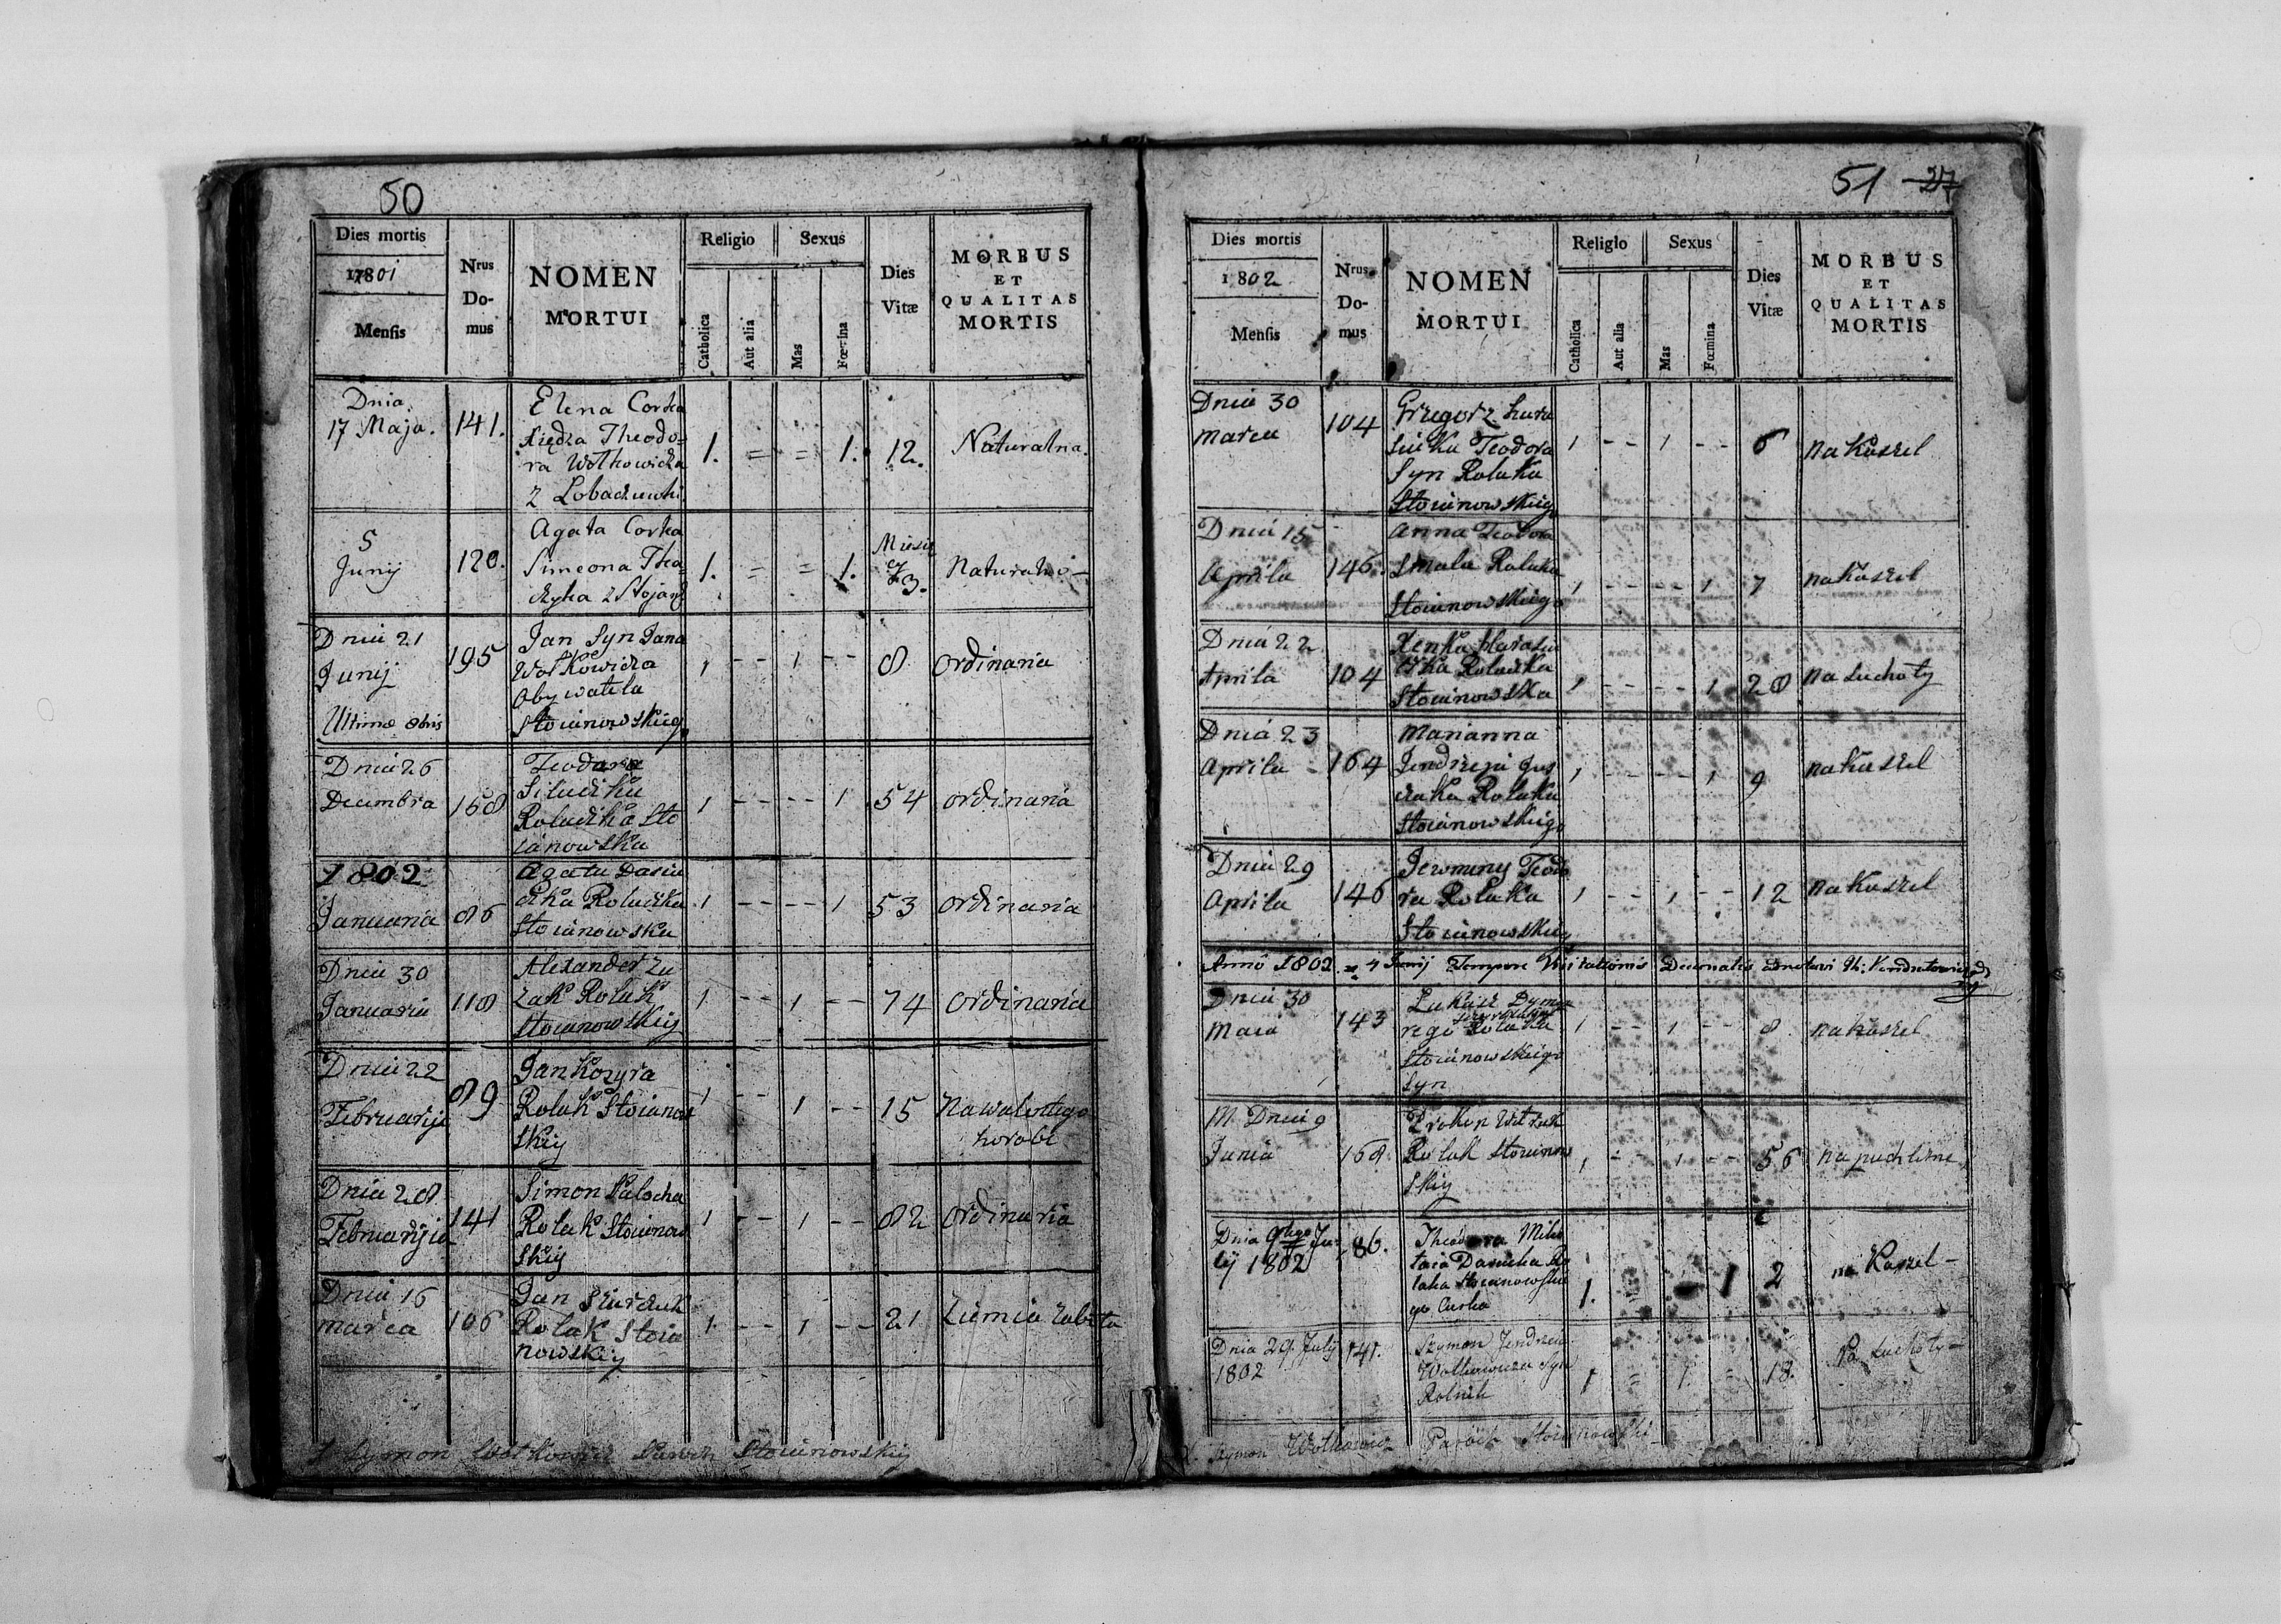 50
Dies mortis
1801
Menſis
Nrus
Do-
mus
NOMEN
MORTUI
Religio
Catholica
Aut alia
Sexus
Mas
Fœmina
Dies
Vitæ
MORBUS
ET
QUALITAS
MORTIS
Dnia
17 Maja.
141.
Elena Corka
Xiędza Theodo=
ra Wołkowicza
z Lobaczuwki
1. = = 1.
12.
Naturalna.
5
Junij
120.
Agata Corka
Simeona
z Stojan
1. = = 1.
3.
Dnia 21
Junij
195
Jan Syn Jana
Wołkowicza
Obywatela
Stoianowskieg
1 - - 1 - -
8
ordinaria
Dnia 26
Decembra
168
Rolaczka Sto
ianowska
1 - - - - 1
54
ordinaria
1802
Januaria
86
Agata Dasiu
czka Rolaczka
Stoianowska
1 - - - - 1
53
ordinaria
Dnia 30
Januaria
118
Alexander Zu
zak Rolak
Stoianowskiy
1 - - 1 - -
74
ordinaria
Dnia 22
Februarija
89
Jan Kozyra
Rolak Stoianow
skiy
1 - - 1 - -
15
Dnia 28
Februarija
141
Simon
Rolak Stoianow
skiy
1 - - 1 - -
82
ordinaria
Dnia 16
marca
106
Jan
Rolak Stoia
nowskiy
1 - - 1 - -
21
Ziemia zabita
Symon Wołkowicz Stoianowskiy
51 27
Dies mortis
1802
Menſis
Nrus
Do-
mus
NOMEN
MORTUI
Religio
Catholica
Aut alia
Sexus
Mas
Fœmina
Dies
Vitæ
MORBUS
ET
QUALITAS
MORTIS
Dnia 30
marca
104
Grzegorz
Teodora
Syn Rolaka
Stoianowskiego
1 - - 1 - -
6
na Kaszel
Dnia 15
Aprila
146.
Anna Teodora
Smala Rolaka
Stoianowskiego
1 - - - - 1
7
na Kaszel
Dnia 22
Aprila
104
Xenka Harasiu
czka Rolaczka
Stoianowska
1 - - - - 1
28
na suchoty
Dnia 23
Aprila
164
Marianna
Jendrzeja
Rolaka
Stoianowskiego
1 - - - - 1
9
na Kaszel
Dnia 29
Aprila
146
Jeremiuy Teodo
ra Rolaka
Stoianowskieg
1 - - 1 - -
12
na Kaszel
Anno 1802 4 Junij Tempore Visitationis Decanalis
Dnia 30
Maia
143
Lukasz
rego Rolaka
Stoianowskiego
Syn
1 - - 1 - -
8
na Kaszel
Dnia 9
Junia
168
Prokop
Rolak Stoianow
skiy
1 - - 1 - -
56
na puchline
Dnia 9tego Ju=
lij 1802
86.
Theodora
Daniela Ro
laka Stoianowskie
go Curka
1. 1
2
na Kaszel -
Dnia 29. Julij
1802
141.
Szymon Jendrzeia
Wołkowicza Syn
Rolnik
1 = 1. =
18.
Na suchoty -
Szymon Wołkowicz Paroch Stoianowski